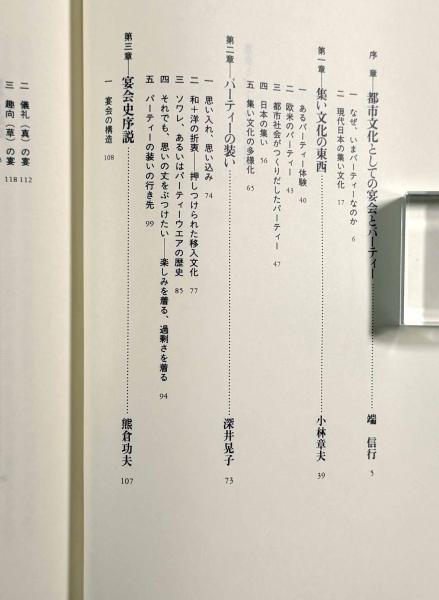 序　章　都市文化としての宴会とパーティー………端　信行　5
一　なぜ、いまパーティーなのか　6
二　現代日本の集い文化　17
第一章　集い文化の東西………小林章夫　39
一　あるパーティー体験　40
二　欧米のパーティー　43
三　都市社会がつくりだしたパーティー　47
四　日本の集い　56
五　集い文化の多様化　65
第二章　パーティーの装い………深井晃子　73
一　思い入れ、思い込み　74
二　和＋洋の折衷――押しつけられた移入文化　77
三　ソワレ、あるいはパーティーウエアの歴史　85
四　それでも、思いの丈をぶつけたい――楽しみを着る、過剰さを着る　94
五　パーティーの装いの行き先　99
第三章　宴会史序説………熊倉功夫　107
一　宴会の構造　108
二　儀礼（真）の宴　112
三　趣向（草）の宴　118